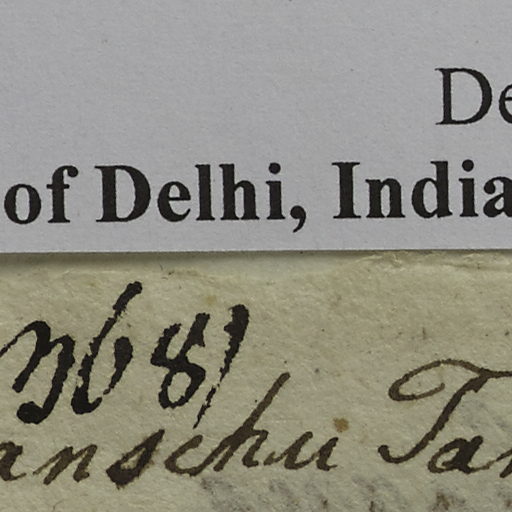 De
of Delhi, India
3681
anschu Tan